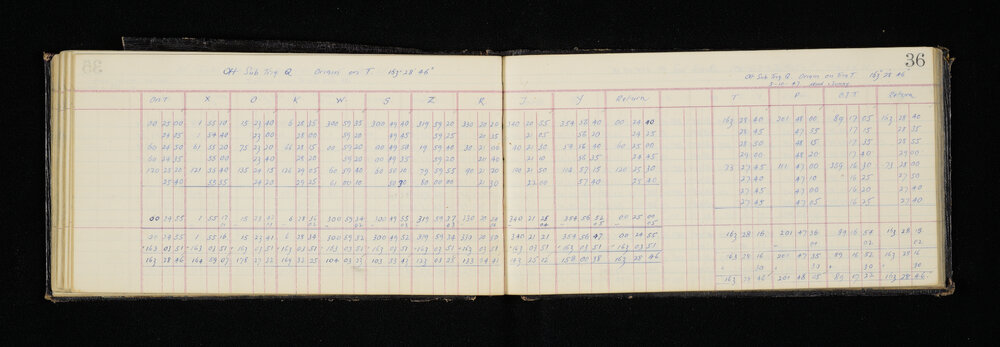 36
Off Sub Trig Q. Origin on T. 163-28 46"
Off Sub Trig Q. Origin on Trig T. 163 28 46
On T X O K W S Z R J Y Return
T P O.J.T. Return
00 25 00 1 55 10 15 23 40 6 28 35 300 59 35 300 49 40 319 59 20 330 20 20 340 20 55 354 56 40 00 24 40
24 35 1 54 40 23 00 28 00 59 20 49 45 59 25 20 35 21 05 56 20 24 25
60 24 50 61 55 20 75 23 20 66 28 15 00 59 20 00 49 50 19 59 40 30 21 00 40 21 30 54 16 40 60 25 00
24 35 55 00 23 40 28 20 59 20 00 49 35 59 20 20 40 21 10 56 35 24 45
120 25 20 121 55 40 135 24 15 126 29 05 60 59 40 50 50 10 79 59 55 90 21 20 190 21 50 114 57 15 120 25 30
25 40 55 55 24 20 29 25 61 00 10 50 20 80 00 00 21 30 22 00 57 40 25 40
163 28 40 201 48 00 89 17 05 163 28 40
28 45 47 55 17 15 28 35
28 50 48 15 17 35 28 55
29 00 48 20 17 40 29 00
73 27 45 111 47 00 359 16 30 73 28 00
27 45 47 10 16 25 27 50
27 45 47 00 16 20 27 40
27 45 47 05 16 25 27 40
00 24 55 1 55 17 15 23 43 6 28 36 300 59 34 300 49 53 319 59 37 330 20 54 340 21 25 354 56 52 00 25 00
00 24 55 1 55 16 15 23 41 6 28 34 300 59 32 300 49 52 319 59 34 330 20 50 340 21 21 354 56 47 00 24 55
163 03 51 163 03 51 163 03 51 163 03 51 163 03 51 163 03 51 163 03 51 163 03 51 163 03 51 163 03 51 163 03 51
163 28 46 164 59 07 178 27 32 169 32 25 104 03 23 103 53 43 123 03 25 133 24 41 143 25 12 158 00 38 163 28 46
163 28 16 201 47 36 89 16 54 163 28 18
163 28 16 201 47 35 89 16 52 163 28 16
30 30 30 30
163 28 46 201 48 05 89 17 22 163 28 46